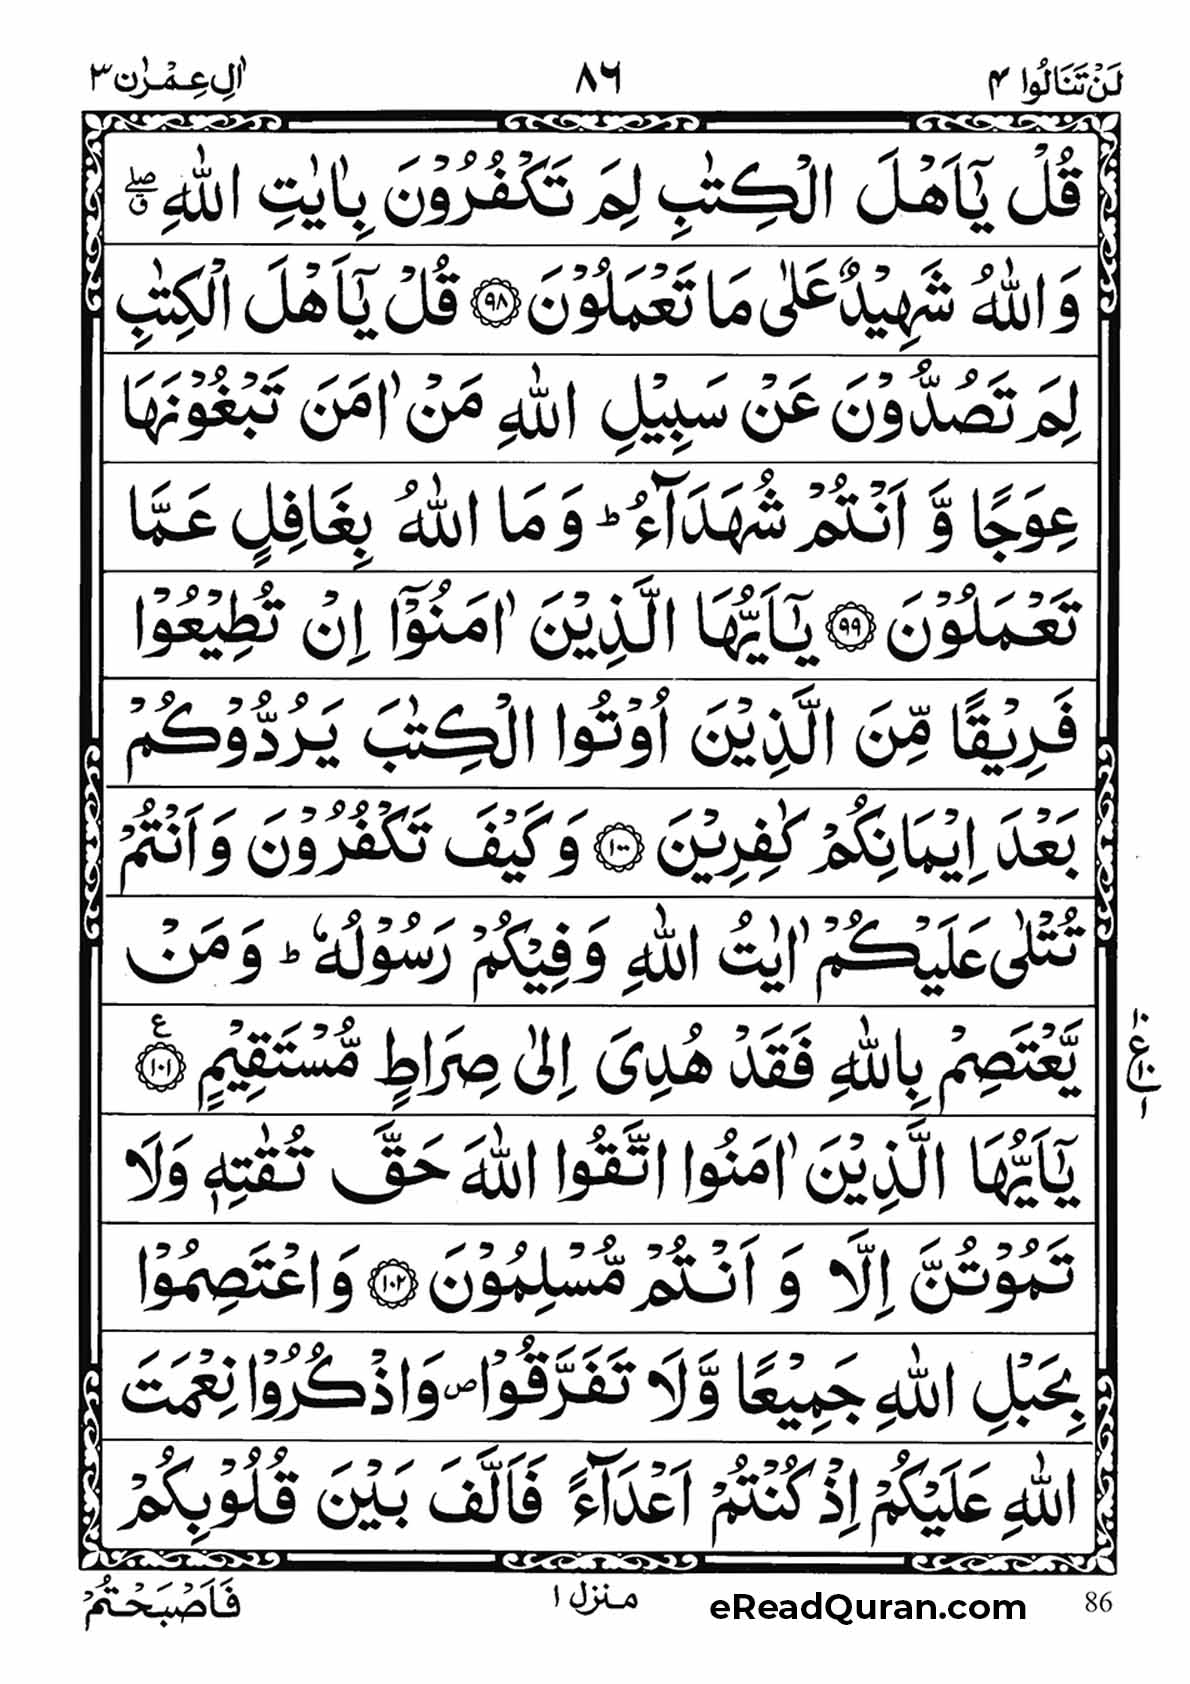 لَنْ تَنَالُوا ٤
٨٦
اٰلِ عِمْرٰن ٣
قُلْ يٰٓاَهْلَ الْكِتٰبِ لِمَ تَكْفُرُوْنَ بِاٰيٰتِ اللّٰهِ ۖۗ
وَاللّٰهُ شَهِيْدٌ عَلٰى مَا تَعْمَلُوْنَ ﴿٩٨﴾ قُلْ يٰٓاَهْلَ الْكِتٰبِ
لِمَ تَصُدُّوْنَ عَنْ سَبِيْلِ اللّٰهِ مَنْ اٰمَنَ تَبْغُوْنَهَا
عِوَجًا وَّ اَنْتُمْ شُهَدَآءُ ؕ وَ مَا اللّٰهُ بِغَافِلٍ عَمَّا
تَعْمَلُوْنَ ﴿٩٩﴾ يٰٓاَيُّهَا الَّذِيْنَ اٰمَنُوْٓا اِنْ تُطِيْعُوْا
فَرِيْقًا مِّنَ الَّذِيْنَ اُوْتُوا الْكِتٰبَ يَرُدُّوْكُمْ
بَعْدَ اِيْمَانِكُمْ كٰفِرِيْنَ ﴿١٠٠﴾ وَ كَيْفَ تَكْفُرُوْنَ وَ اَنْتُمْ
تُتْلٰى عَلَيْكُمْ اٰيٰتُ اللّٰهِ وَ فِيْكُمْ رَسُوْلُهٗ ؕ وَ مَنْ
يَّعْتَصِمْ بِاللّٰهِ فَقَدْ هُدِىَ اِلٰى صِرَاطٍ مُّسْتَقِيْمٍ ﴿١٠١﴾ ع
١٠
ع ١٠
١
يٰٓاَيُّهَا الَّذِيْنَ اٰمَنُوا اتَّقُوا اللّٰهَ حَقَّ تُقٰتِهٖ وَلَا
تَمُوْتُنَّ اِلَّا وَ اَنْتُمْ مُّسْلِمُوْنَ ﴿١٠٢﴾ وَ اعْتَصِمُوْا
بِحَبْلِ اللّٰهِ جَمِيْعًا وَّلَا تَفَرَّقُوْا ص وَاذْكُرُوْا نِعْمَتَ
اللّٰهِ عَلَيْكُمْ اِذْ كُنْتُمْ اَعْدَآءً فَاَلَّفَ بَيْنَ قُلُوْبِكُمْ
86
eReadQuran.com
منزل ١
فَاَصْبَحْتُمْ